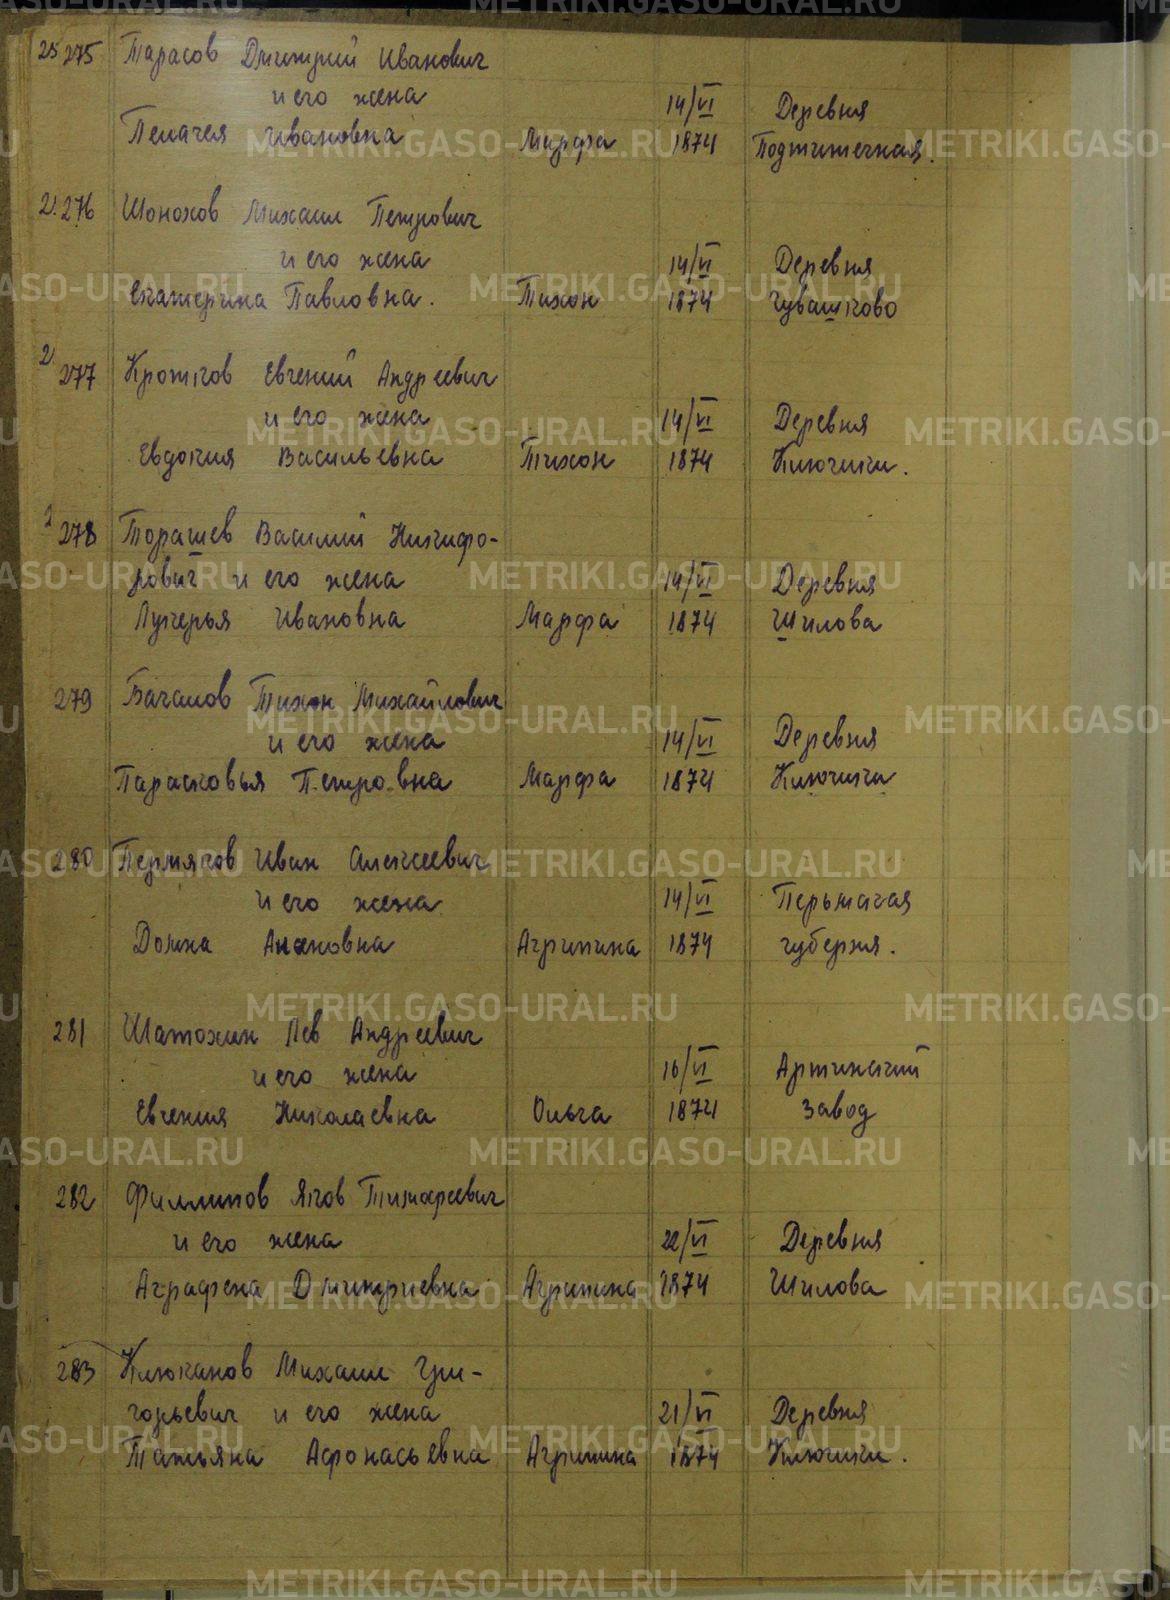 275 Тарасов Дмитрий Иванович
и его жена
Пелагея Ивановна Марфа 14/VI 1874 Деревня Подтитечная.
276 Шонохов Михаил Петрович
и его жена
Екатерина Павловна. Тихон 14/VI 1874 Деревня Чувашково
277 Кротков Евгений Андреевич
и его жена
Евдокия Васильевна Тихон 14/VI 1874 Деревня Ключики.
278 Торашев Василий Никифо-
рович и его жена
Лукерья Ивановна Марфа 14/VI 1874 Деревня Шилова
279 Бачалов Тихон Михайлович
и его жена
Парасковья Петровна Марфа 14/VI 1874 Деревня Ключики
280 Пермяков Иван Алексеевич
и его жена
Домна Агрипина 14/VI 1874 губерня.
281 Шатохин Лев Андреевич
и его жена
Евгения Николаевна Ольга 16/VI 1874 Артинский завод
282 Филлипов Яков
и его жена
Аграфена Дмитриевна Агрипина 22/VI 1874 Деревня Шилова
283 Клюканов Михаил Гри-
горьевич и его жена
Татьяна Афонасьевна Агрипина 21/VI 1874 Деревня Ключики.
METRIKI.GASO-URAL.RU